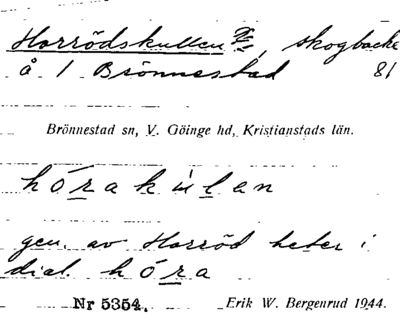 Horrödskullen Tr, skogbacke
å 1 Brönnestad 81
Brönnestad sn, V. Göinge hd, Kristianstads län.
hórakùlan
gen. av Horröd heter i
dial. hóra
Nr 5354. Erik W. Bergenrud 1944.